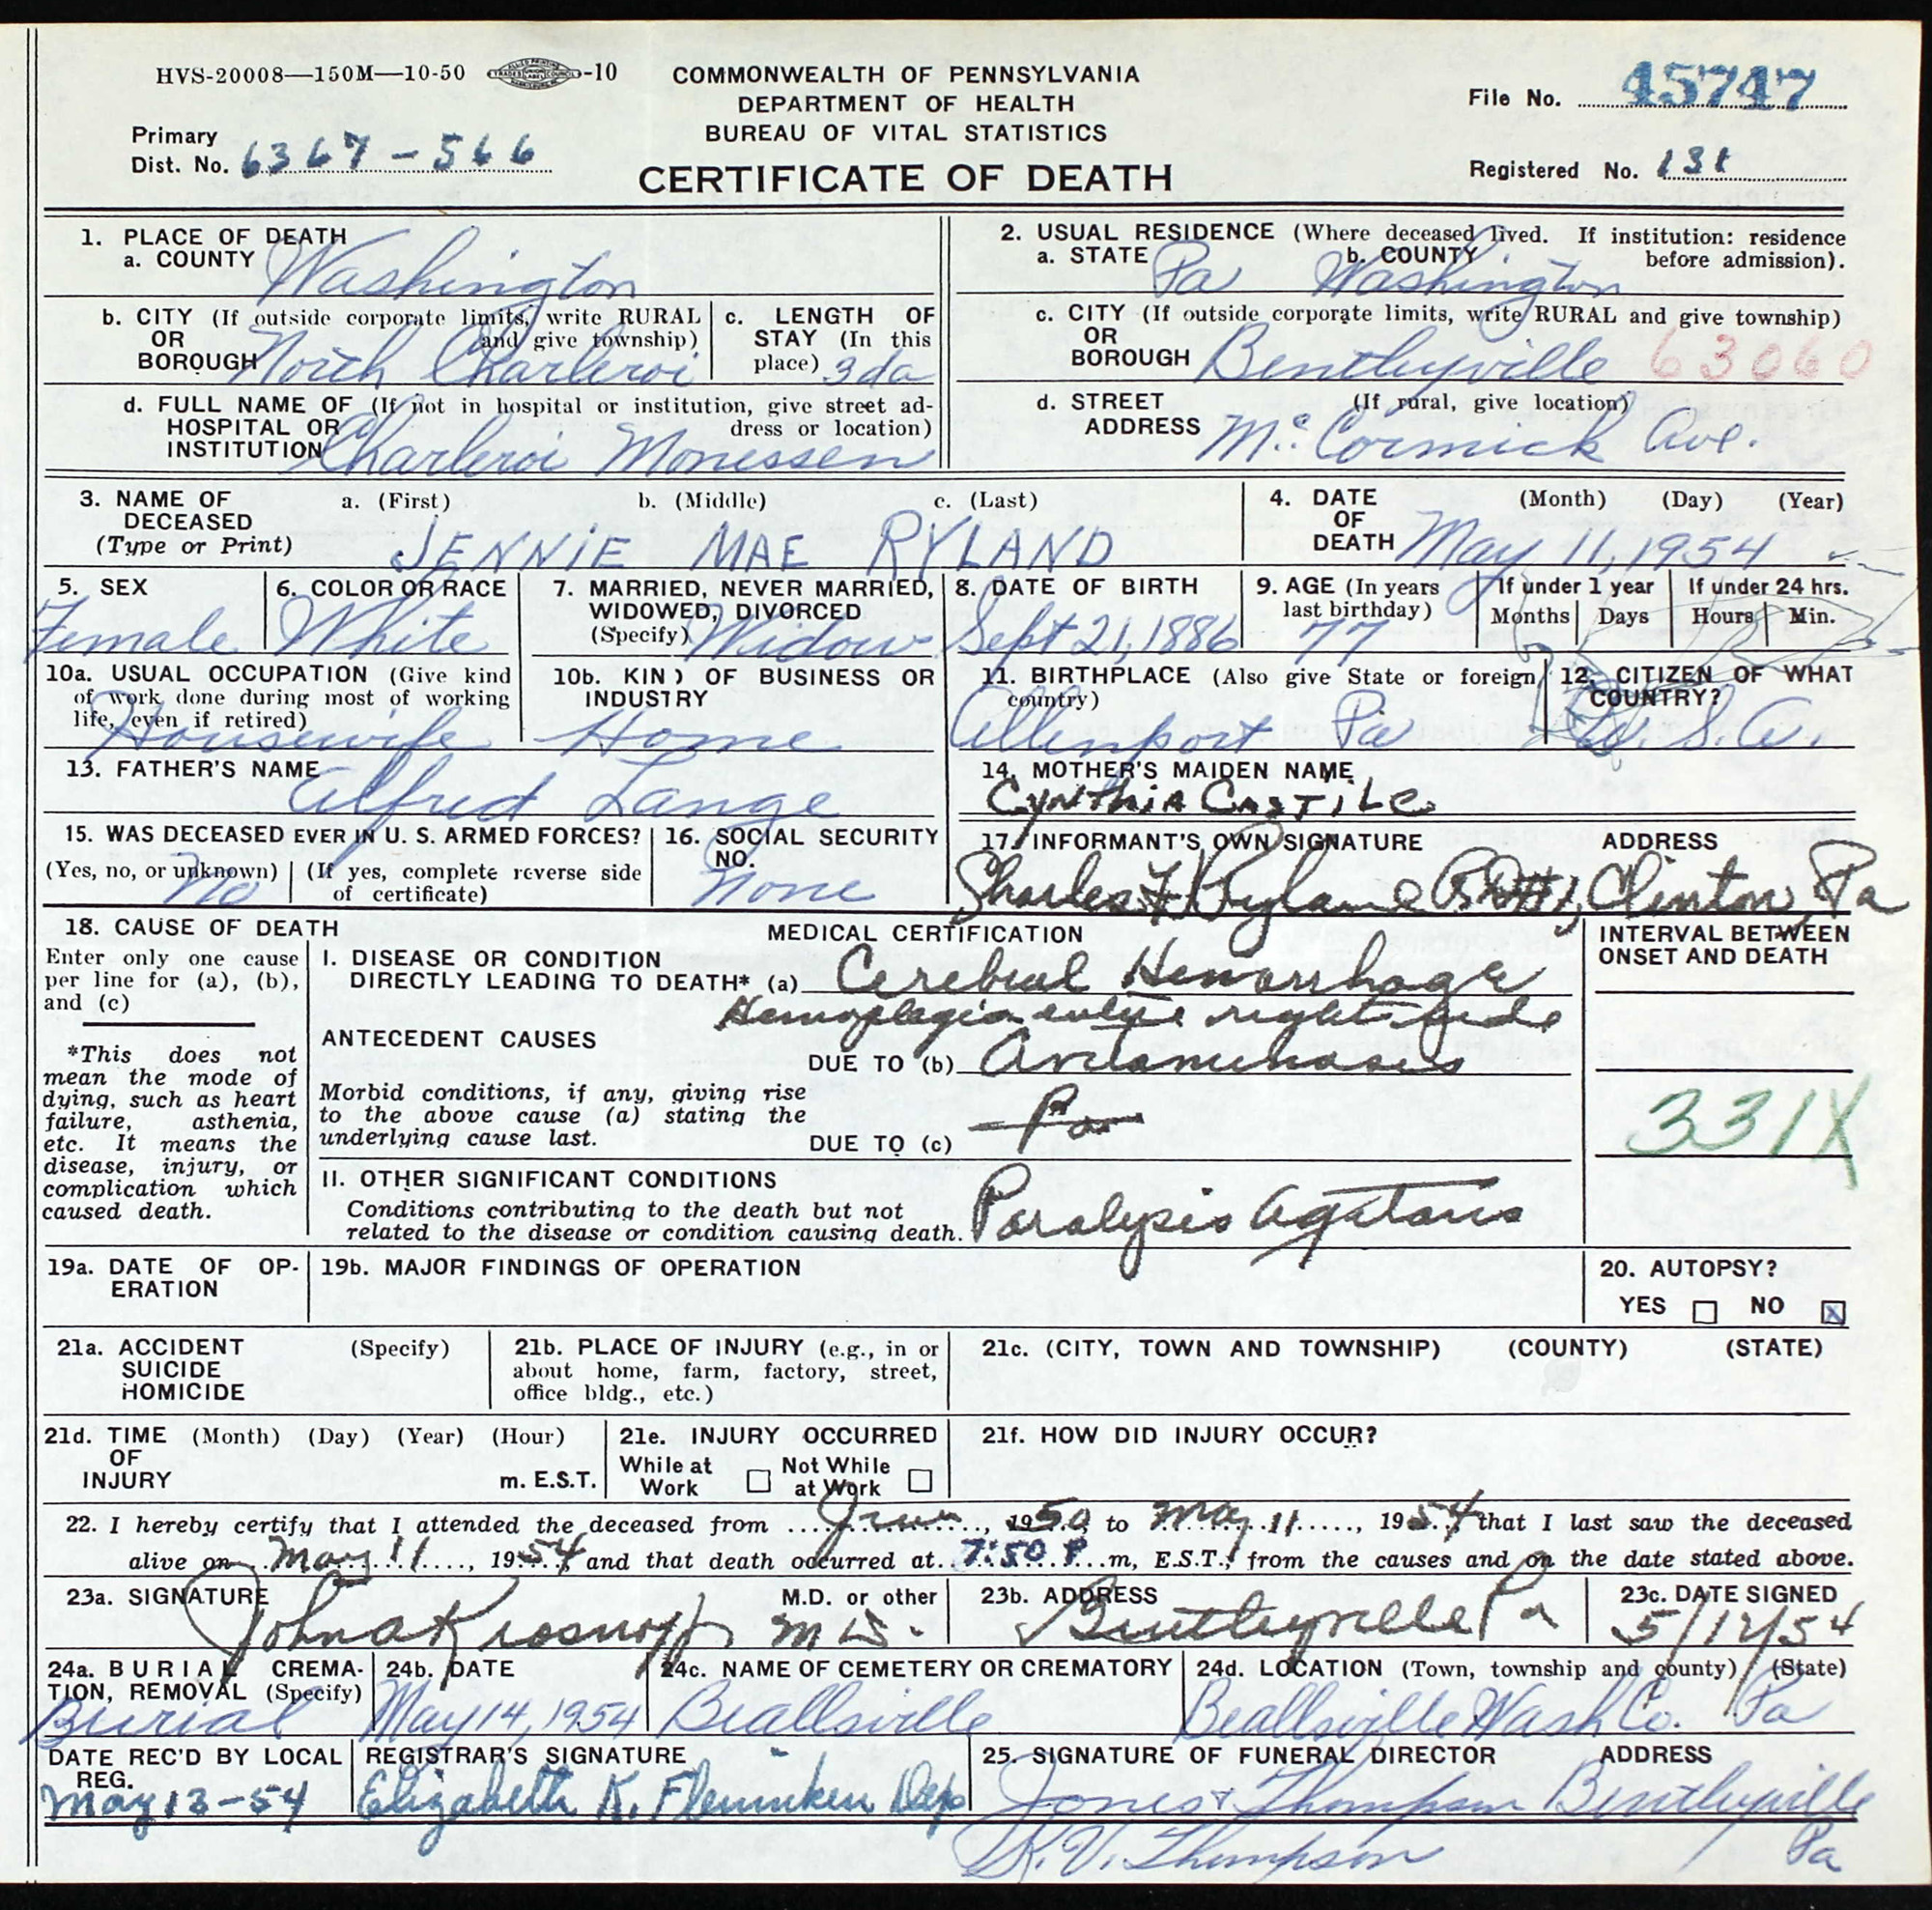 HVS-20008—150M—10-50 -10
COMMONWEALTH OF PENNSYLVANIA
DEPARTMENT OF HEALTH
BUREAU OF VITAL STATISTICS
CERTIFICATE OF DEATH
File No. 45747
Primary
Dist. No. 6367-566
Registered No. 131
1. PLACE OF DEATH
a. COUNTY Washington
2. USUAL RESIDENCE (Where deceased lived. If institution: residence
before admission).
a. STATE Pa b. COUNTY Washington
b. CITY (If outside corporate limits, write RURAL
OR and give township)
BOROUGH North Charleroi
c. LENGTH OF
STAY (In this
place) 3 da
c. CITY (If outside corporate limits, write RURAL and give township)
OR
BOROUGH Bentleyville 63060
d. FULL NAME OF (If not in hospital or institution, give street ad-
HOSPITAL OR dress or location)
INSTITUTION Charleroi Monessen
d. STREET (If rural, give location)
ADDRESS McCormick Ave.
3. NAME OF a. (First) b. (Middle) c. (Last)
DECEASED
(Type or Print) JENNIE MAE RYLAND
4. DATE (Month) (Day) (Year)
OF
DEATH May 11, 1954
5. SEX
Female
6. COLOR OR RACE
White
7. MARRIED, NEVER MARRIED,
WIDOWED, DIVORCED
(Specify) Widow
8. DATE OF BIRTH
Sept 21, 1886
9. AGE (In years
last birthday)
77
If under 1 year
Months Days
If under 24 hrs.
Hours Min.
10a. USUAL OCCUPATION (Give kind
of work done during most of working
life, even if retired)
Housewife
10b. KIND OF BUSINESS OR
INDUSTRY
Home
11. BIRTHPLACE (Also give State or foreign
country)
Allenport Pa
12. CITIZEN OF WHAT
COUNTRY?
U.S.A.
13. FATHER'S NAME
Alfred Lange
14. MOTHER'S MAIDEN NAME
CYNTHIA CASTILE
15. WAS DECEASED EVER IN U. S. ARMED FORCES?
(Yes, no, or unknown) (If yes, complete reverse side
of certificate)
No
16. SOCIAL SECURITY
NO.
None
17. INFORMANT'S OWN SIGNATURE ADDRESS
Charles F Ryland Clinton, Pa
18. CAUSE OF DEATH
Enter only one cause
per line for (a), (b),
and (c)
*This does not
mean the mode of
dying, such as heart
failure, asthenia,
etc. It means the
disease, injury, or
complication which
caused death.
MEDICAL CERTIFICATION
I. DISEASE OR CONDITION
DIRECTLY LEADING TO DEATH* (a) Cerebral Hemorrhage
right side
ANTECEDENT CAUSES
DUE TO (b)
Morbid conditions, if any, giving rise
to the above cause (a) stating the
underlying cause last.
DUE TO (c) Pa
II. OTHER SIGNIFICANT CONDITIONS
Conditions contributing to the death but not
related to the disease or condition causing death.
Paralysis Agitans
INTERVAL BETWEEN
ONSET AND DEATH
331X
19a. DATE OF OP-
ERATION
19b. MAJOR FINDINGS OF OPERATION
20. AUTOPSY?
YES NO X
21a. ACCIDENT (Specify)
SUICIDE
HOMICIDE
21b. PLACE OF INJURY (e.g., in or
about home, farm, factory, street,
office bldg., etc.)
21c. (CITY, TOWN AND TOWNSHIP) (COUNTY) (STATE)
21d. TIME (Month) (Day) (Year) (Hour)
OF
INJURY m. E.S.T.
21e. INJURY OCCURRED
While at Not While
Work at Work
21f. HOW DID INJURY OCCUR?
22. I hereby certify that I attended the deceased from June, 1950, to May 11, 1954, that I last saw the deceased
alive on May 11, 1954, and that death occurred at 7:50 P. m, E.S.T., from the causes and on the date stated above.
23a. SIGNATURE M.D. or other
John A Krosnoff M.D.
23b. ADDRESS
Bentleyville Pa
23c. DATE SIGNED
5/12/54
24a. BURIAL CREMA-
TION, REMOVAL (Specify)
Burial
24b. DATE
May 14, 1954
24c. NAME OF CEMETERY OR CREMATORY
Beallsville
24d. LOCATION (Town, township and county) (State)
Beallsville Wash Co. Pa
DATE REC'D BY LOCAL
REG.
May 13-54
REGISTRAR'S SIGNATURE
Elizabeth K. Flenniken Dep
25. SIGNATURE OF FUNERAL DIRECTOR ADDRESS
Jones & Thompson Bentleyville
R.V. Thompson Pa